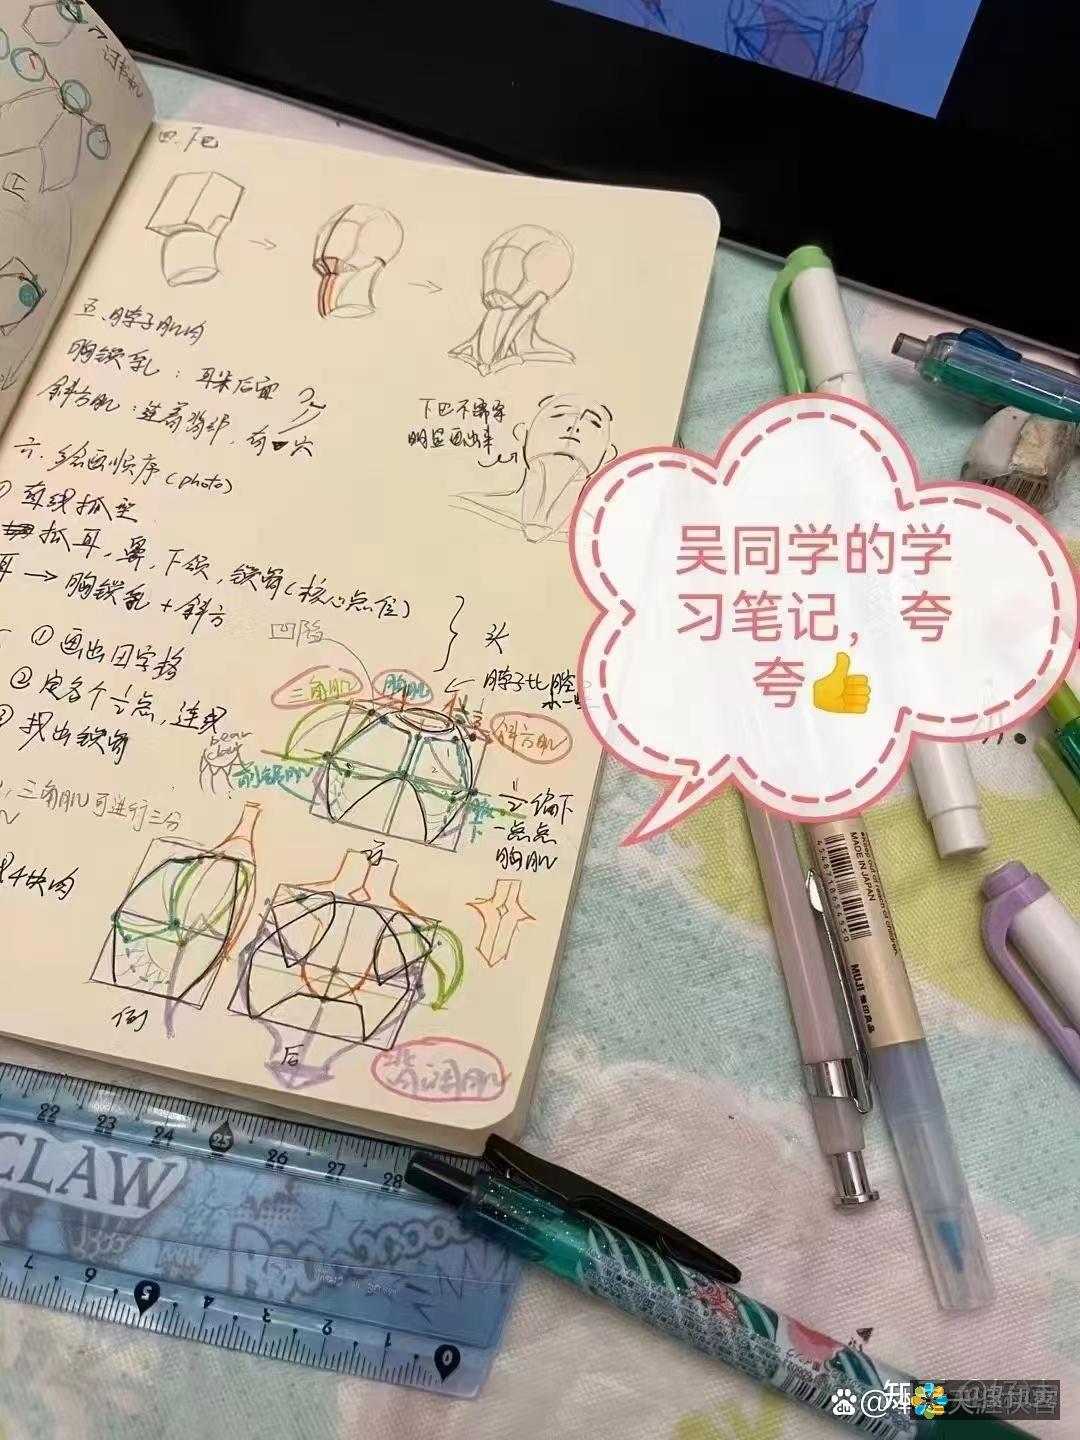 四.下巴
五.脖子肌肉
胸锁乳：耳朵后面
斜方肌：连着背部，有穴
下巴不需要
明显画出来
六.绘画顺序(photo)
直线抓型
抓耳，鼻，下颌，锁骨(核心点位)
耳→胸锁乳+斜方
凹陷
头
①画出田字格
②定各个½点，连线
③找出锁骨
脖子比腔
三角肌
胸肌
斜方肌
前锯肌
bear
三角肌可进行三分
½偏下
一点点
胸肌
4块肉
正
侧
后
背阔肌
吴同学的学
习笔记，夸
夸👍
MADE IN JAPAN
MUJI 無印良品
CLAW
22 23 24 25 26 27 28
7 6 5 4 3 2 1 0
知
Bai du @
天涯侠客